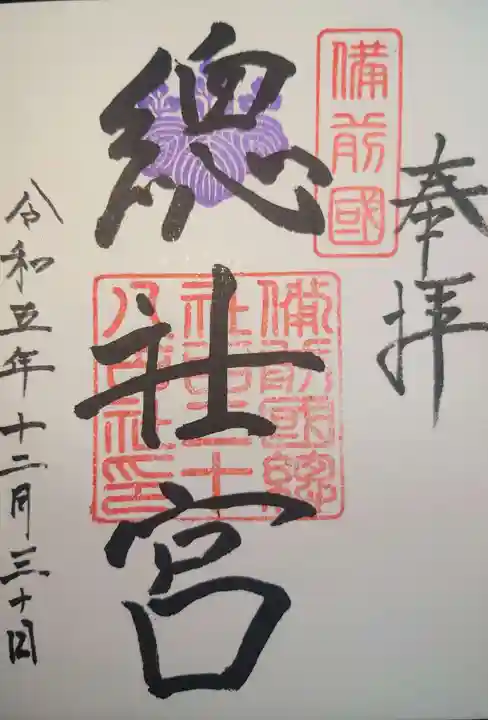 奉拝
備前國
總社宮
備前國總
社百二十
八社印
令和五年十二月三十日